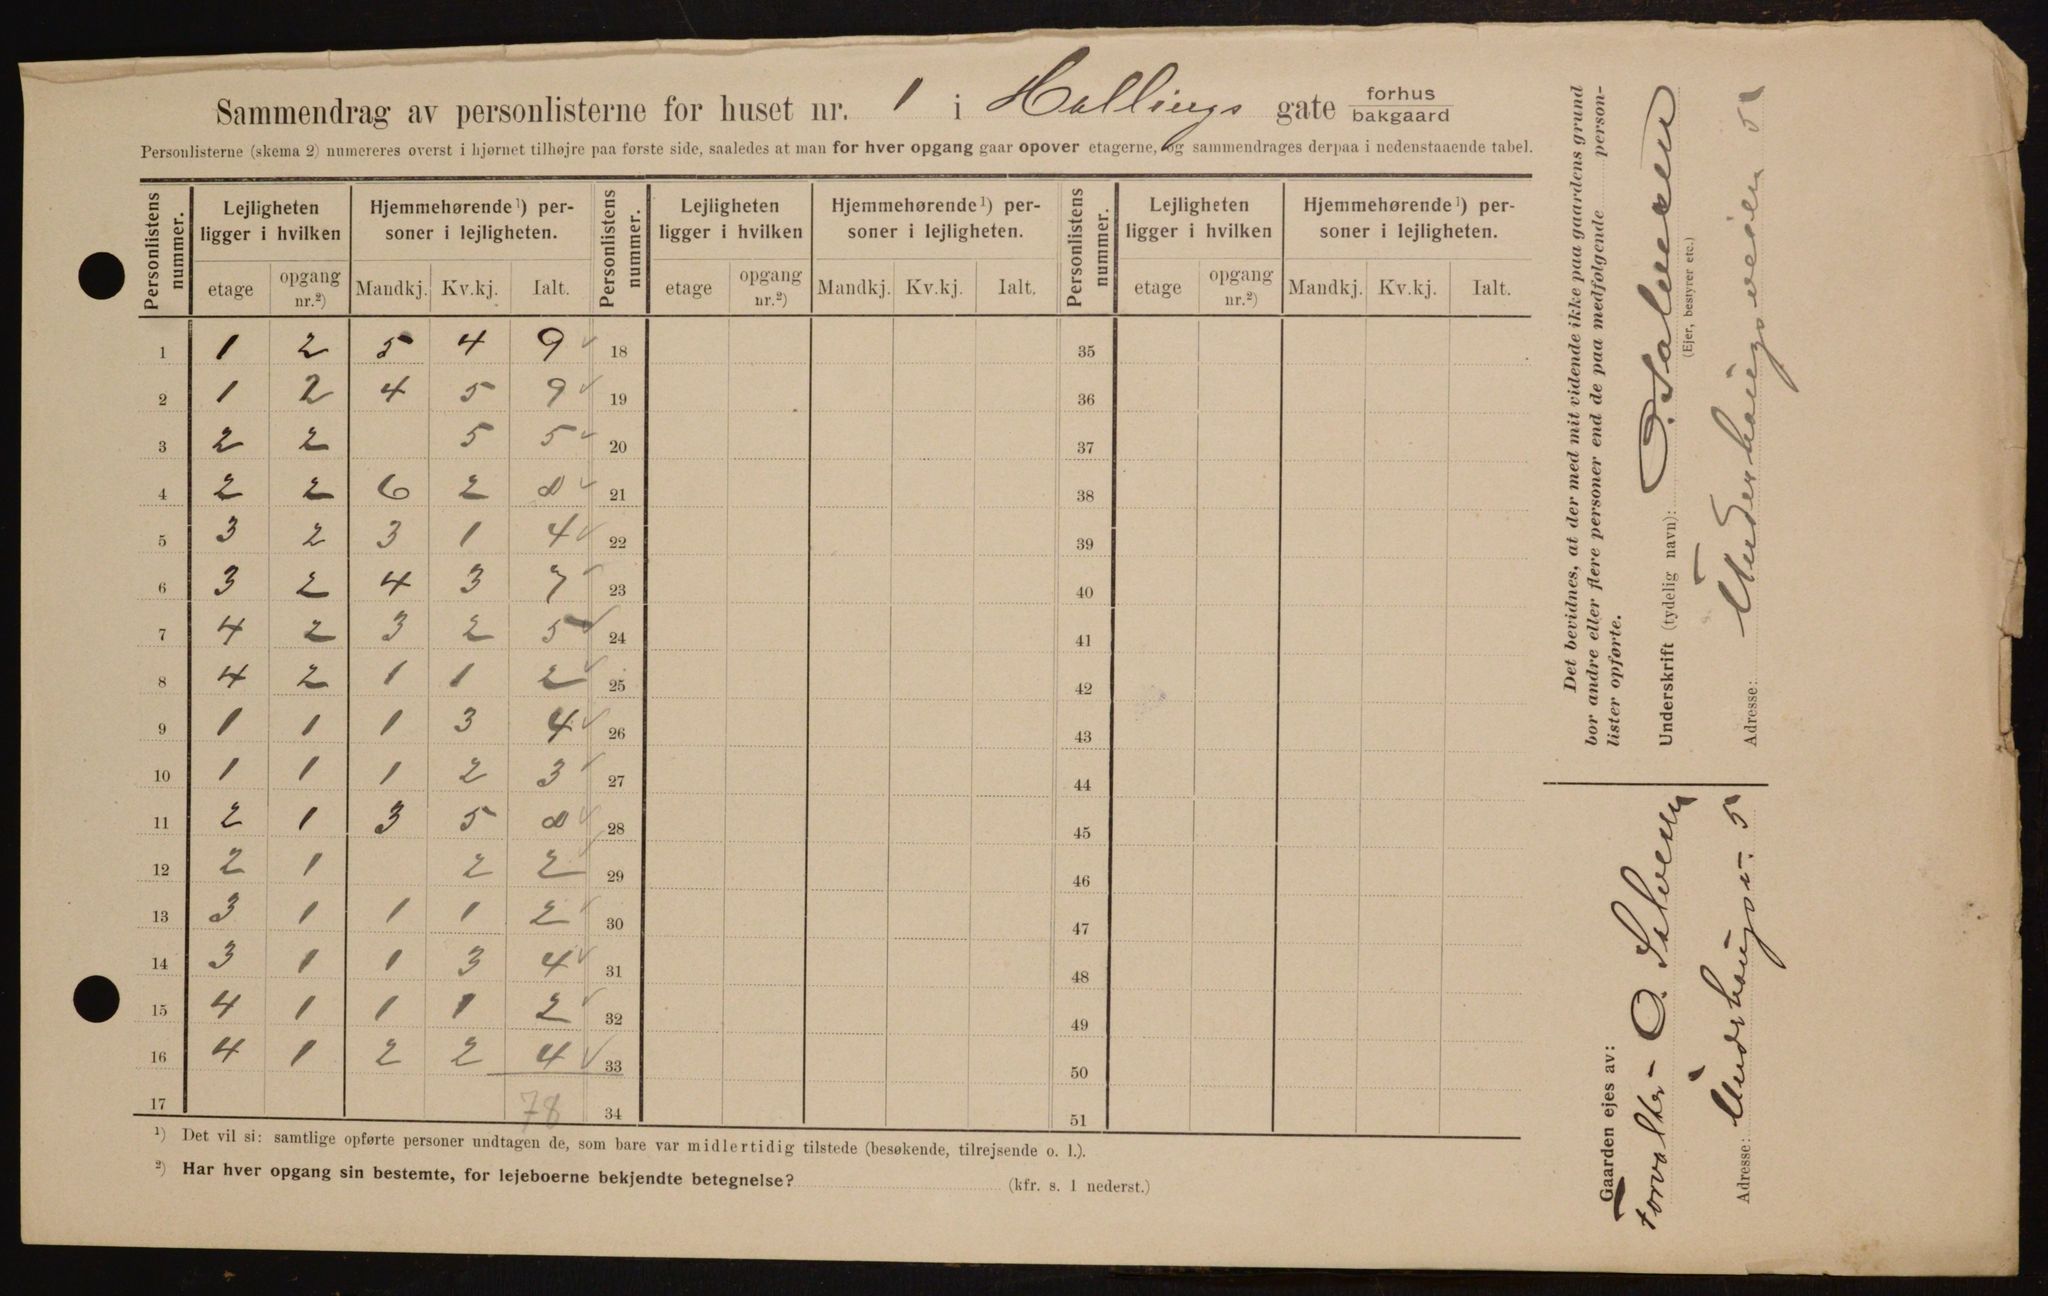 Sammendrag av personlisterne for huset nr. 1 i Hallings gate forhus bakgaard
Personlisterne (skema 2) numereres øverst i hjørnet tilhøjre paa første side, saaledes at man for hver opgang gaar opover etagerne, og sammendrages derpaa i nedenstaaende tabel.
Personlistens nummer. Lejligheten ligger i hvilken Hjemmehørende¹) personer i lejligheten. Personlistens nummer. Lejligheten ligger i hvilken Hjemmehørende¹) personer i lejligheten. Personlistens nummer. Lejligheten ligger i hvilken Hjemmehørende¹) personer i lejligheten.
etage opgang nr.²) Mandkj. Kv.kj. Ialt. etage opgang nr.²) Mandkj. Kv.kj. Ialt. etage opgang nr.²) Mandkj. Kv.kj. Ialt.
1 1 2 5 4 9 18 35
2 1 2 4 5 9 19 36
3 2 2 5 5 20 37
4 2 2 6 2 8 21 38
5 3 2 3 1 4 22 39
6 3 2 4 3 7 23 40
7 4 2 3 2 5 24 41
8 4 2 1 1 2 25 42
9 1 1 1 3 4 26 43
10 1 1 1 2 3 27 44
11 2 1 3 5 8 28 45
12 2 1 2 2 29 46
13 3 1 1 1 2 30 47
14 3 1 1 3 4 31 48
15 4 1 1 1 2 32 49
16 4 1 2 2 4 33 50
17 78 34 51
¹) Det vil si: samtlige opførte personer undtagen de, som bare var midlertidig tilstede (besøkende, tilrejsende o. l.).
²) Har hver opgang sin bestemte, for lejeboerne bekjendte betegnelse? (kfr. s. 1 nederst.)
Det bevidnes, at der med mit vidende ikke paa gaardens grund
bor andre eller flere personer end de paa medfølgende personlister
opførte.
Underskrift (tydelig navn):
(Ejer, bestyrer etc.)
Adresse: Underhaugsveien 5
Gaarden ejes av:
Forvalter - O.
Adresse: Underhaugsv. 5